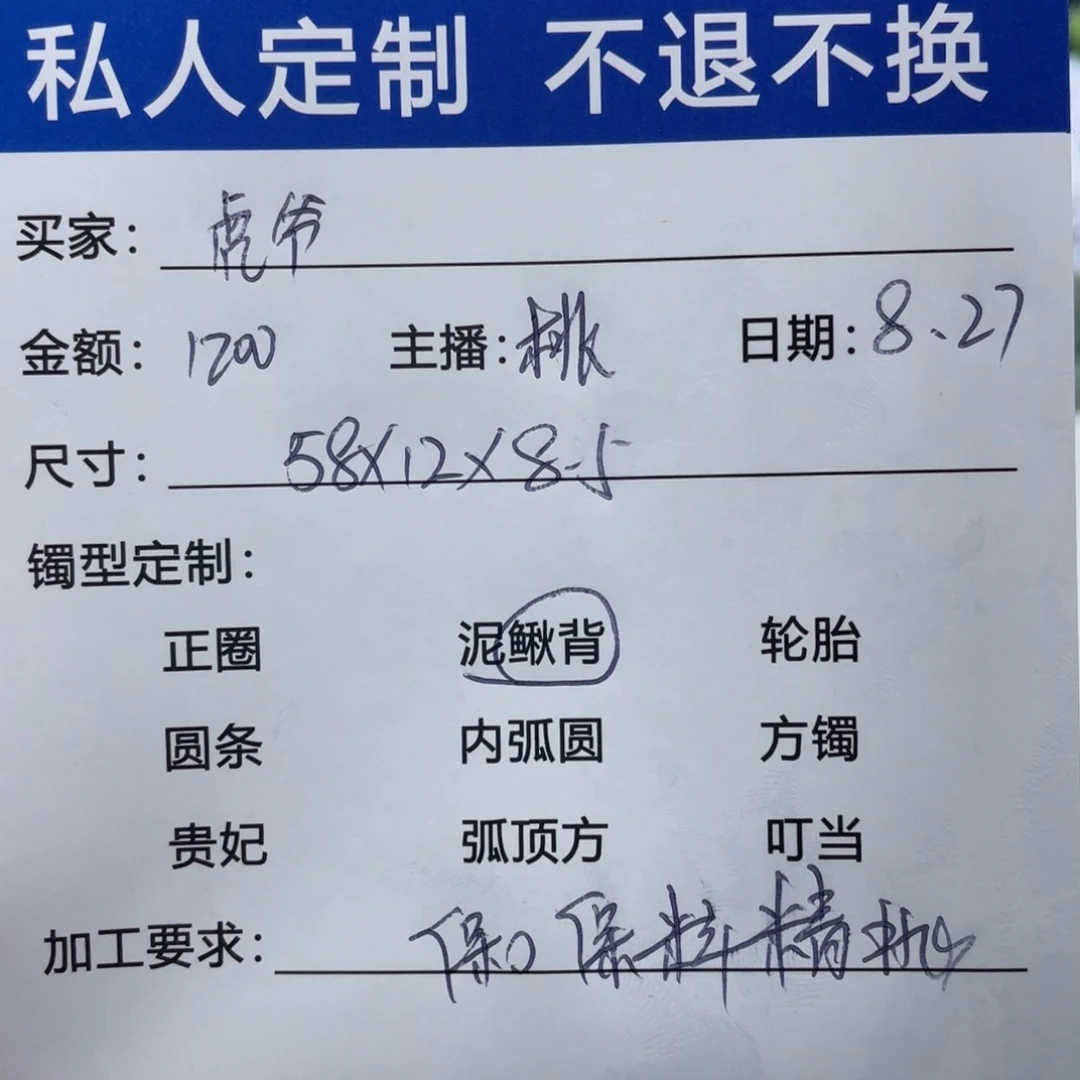 私人定制 不退不换
买家: 虎爷
金额: 1200 主播: 桃 日期: 8.27
尺寸: 58X12X8.5
镯型定制:
正圈 泥鳅背 轮胎
圆条 内弧圆 方镯
贵妃 弧顶方 叮当
加工要求: 保口保料精